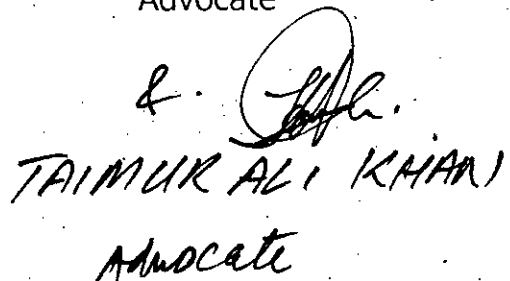 Advocate
&.
TAIMUR ALI KHAN
Advocate